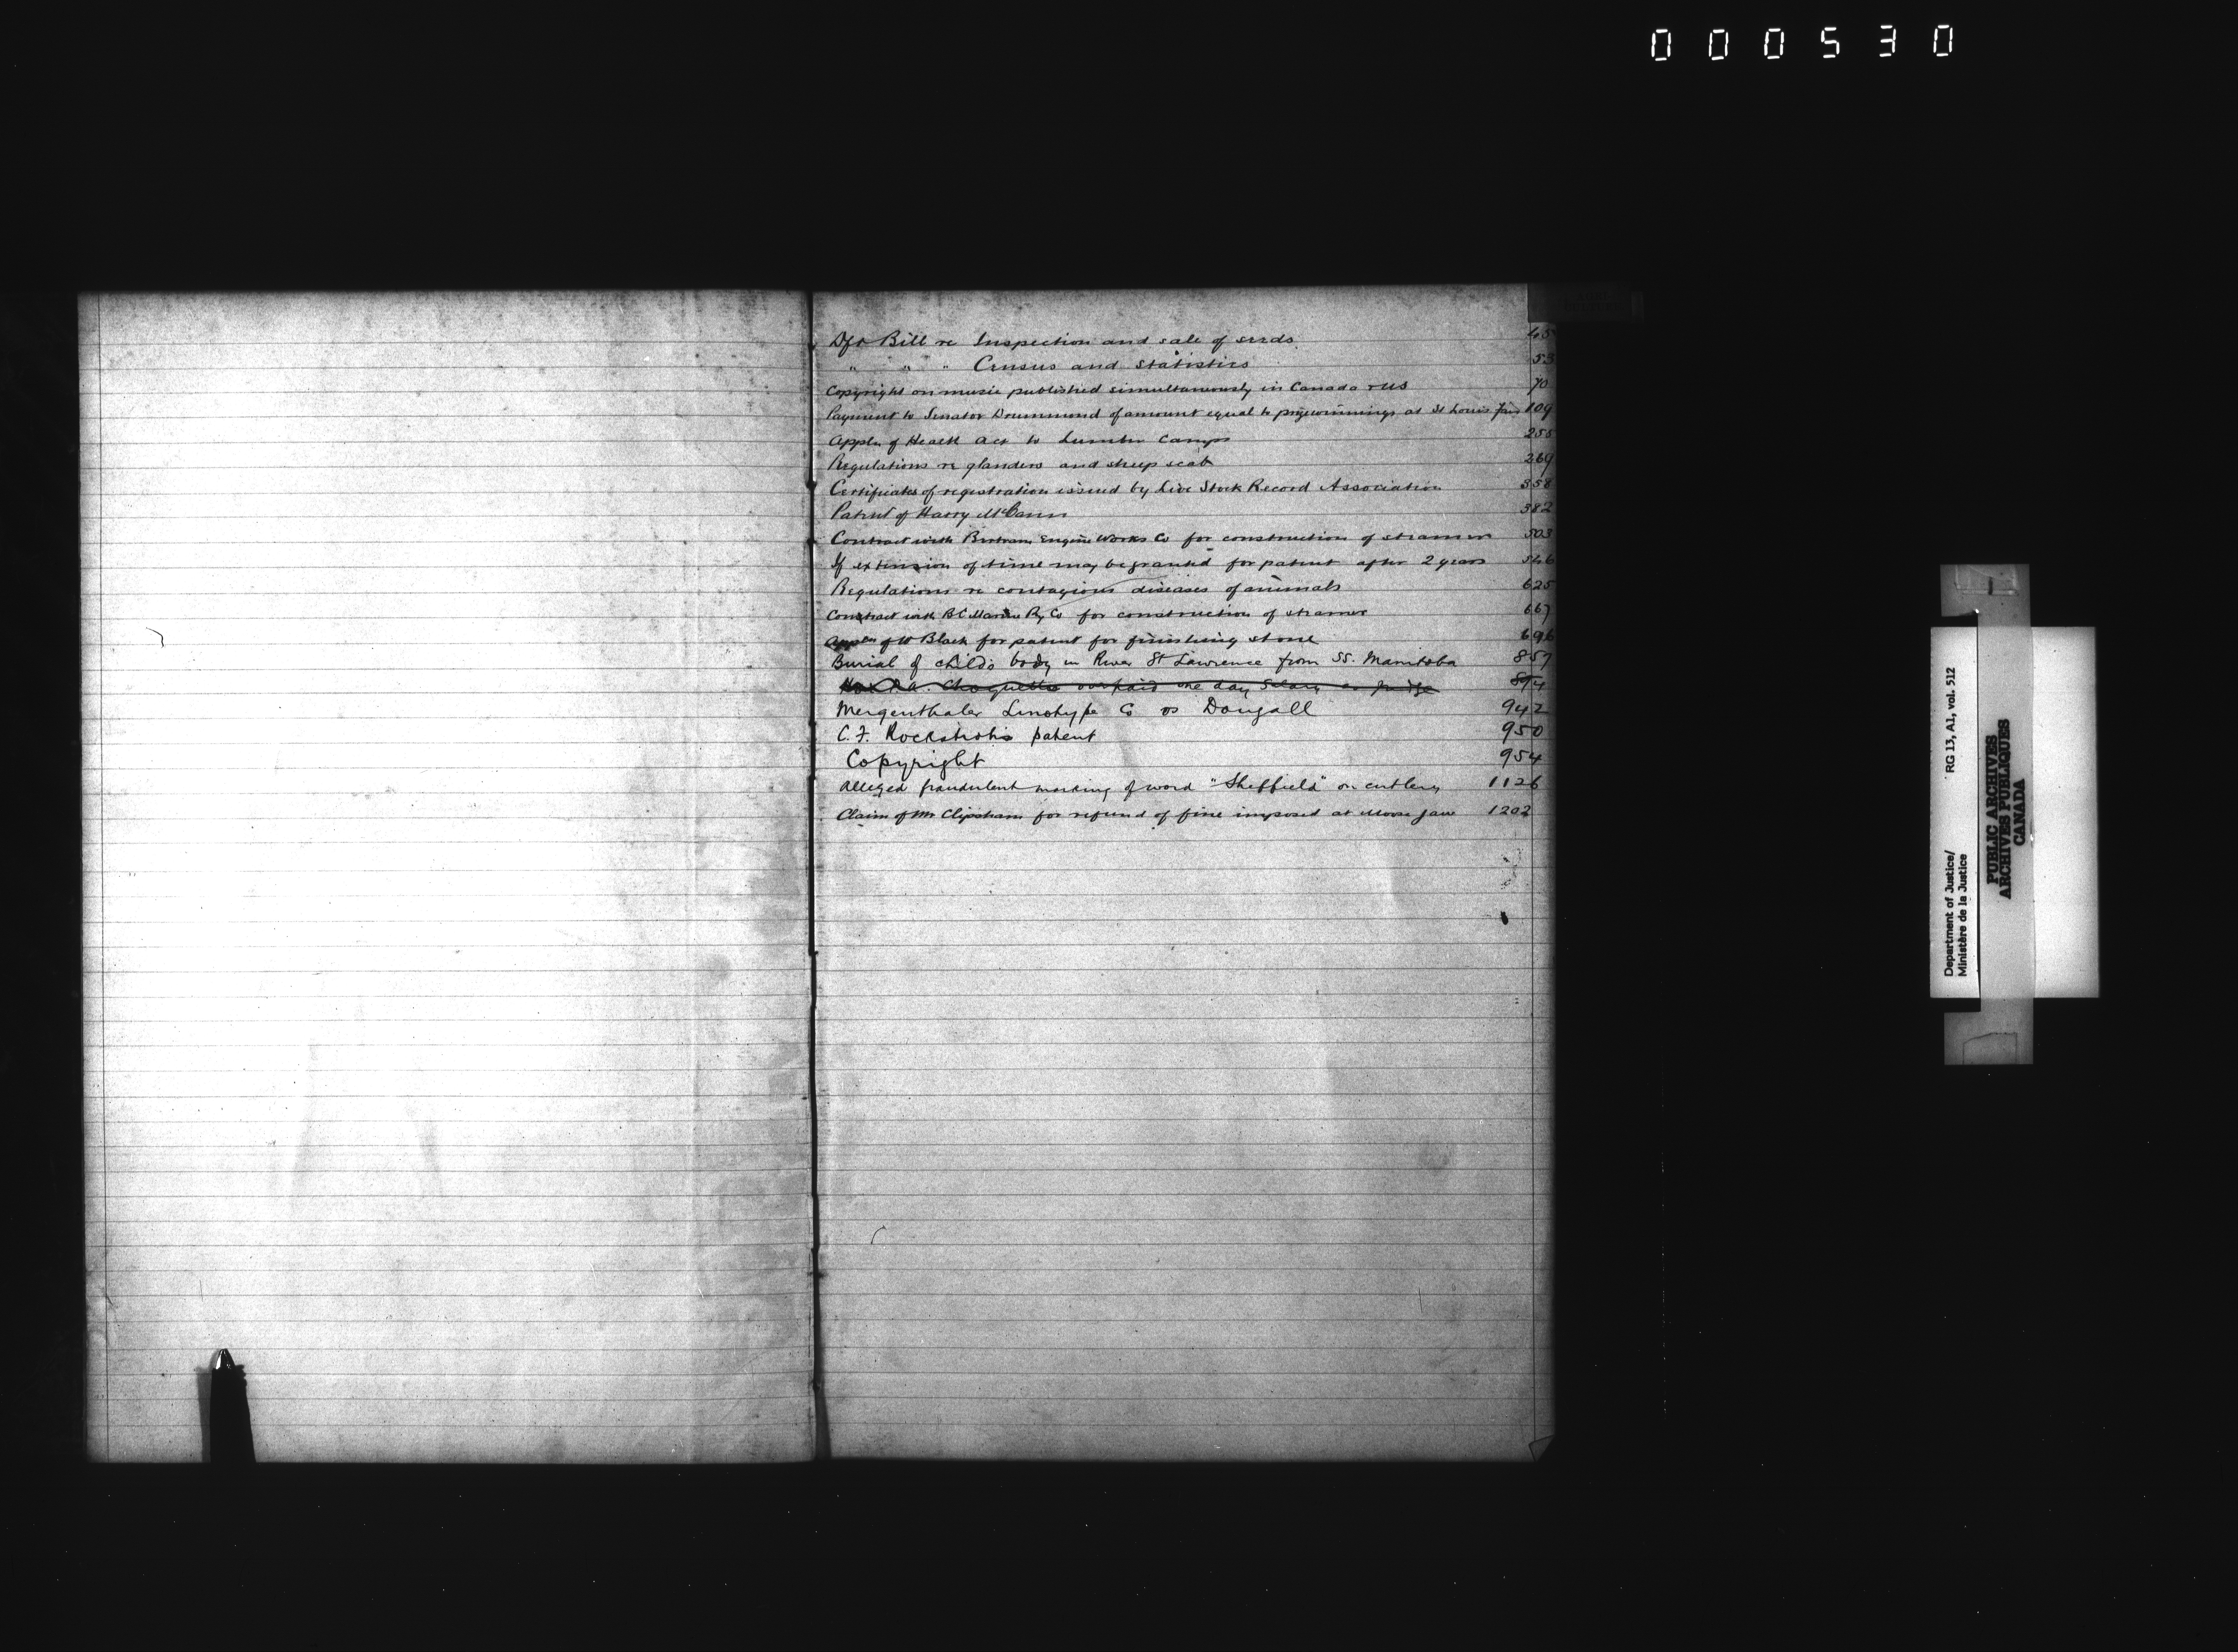 000530
Dft Bill re Inspection and sale of seeds 45
" " " Census and Statistics 53
Copyright on music published simultaneously in Canada + US 70
Payment to Senator Drummond of amount equal to prizewinnings at St Louis Fair 109
Appln of Health Act to Lumber Camps 255
Regulations re glanders and sheep scab 269
Certificates of registration issued by Live Stock Record Association 358
Patent of Harry McCann 382
Contract with Bertram Engine Works Co for construction of steamer 503
If extension of time may be granted for patent after 2 years 546
Regulations re contagious diseases of animals 625
Contract with B.C. Marine Ry Co for construction of steamer 667
Appln of W Black for patent for finishing stone 696
Burial of child's body in River St Lawrence from SS. Manitoba 857
Hon P.A. Choquette overpaid one day Salary as judge 894
Mergenthaler Linotype Co vs Dougall 942
C.F. Rockstroh's patent 950
Copyright 954
Alleged fraudulent marking of word "Sheffield" on cutlery 1126
Claim of Mr Clipsham for refund of fine imposed at Moose Jaw 1202
Department of Justice/ RG 13, A1, vol. 512
Ministère de la Justice
PUBLIC ARCHIVES
ARCHIVES PUBLIQUES
CANADA